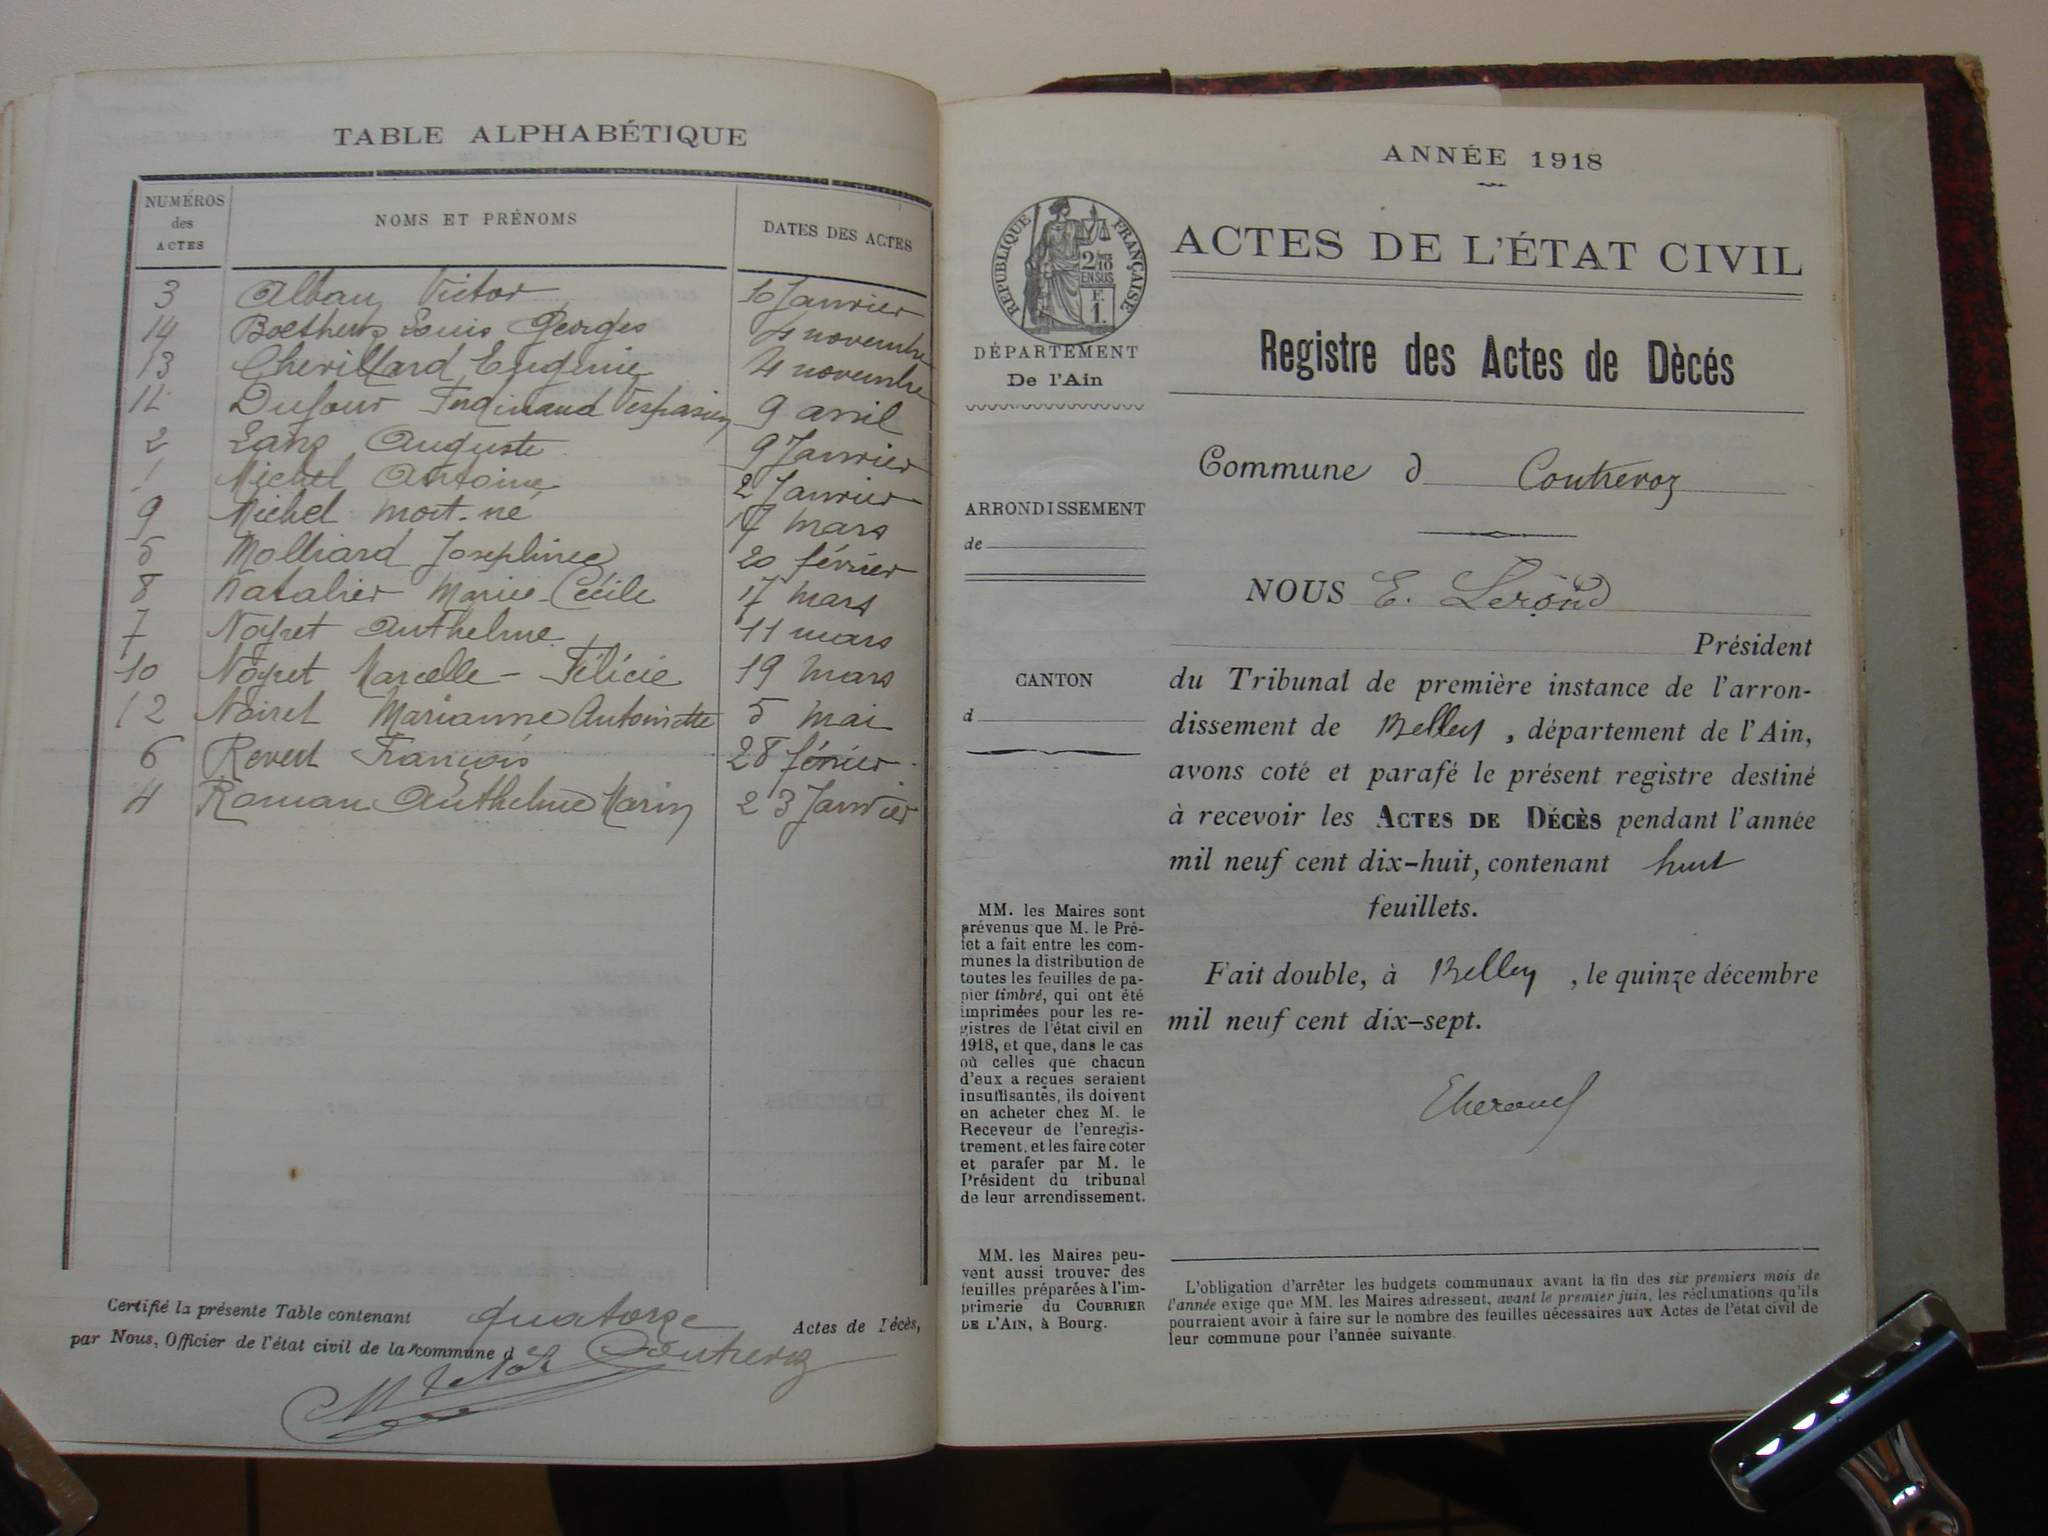 TABLE ALPHABÉTIQUE
NUMÉROS des ACTES NOMS ET PRÉNOMS DATES DES ACTES
3 Alban Victor 10 Janvier
14 Louis Georges 4 novembre
13 Chevillard Eugénie 4 novembre
11 Dufour Ferdinand Vespasien 9 avril
2 Lanz Auguste 9 Janvier
1 Michel Antoine 2 Janvier
9 Michel mort-né 17 mars
5 Molliard Josephine 20 février
8 Natalier Marie-Cécile 17 mars
7 Noyret Anthelme 11 mars
10 Noyret Marcelle-Félicie 19 mars
12 Noiret Marianne Antoinette 5 mai
6 Revert François 28 février
4 Roman Anthelme Marin 23 Janvier
Certifié la présente Table contenant quatorze Actes de Décès,
par Nous, Officier de l'état civil de la commune de Contrevoz
ANNÉE 1918
RÉPUBLIQUE FRANÇAISE
2/10
EN SUS
F.
1.
DÉPARTEMENT
De l'Ain
ARRONDISSEMENT
de
CANTON
d
MM. les Maires sont
prévenus que M. le Pré-
fet a fait entre les com-
munes la distribution de
toutes les feuilles de pa-
pier timbré, qui ont été
imprimées pour les re-
gistres de l'état civil en
1918, et que, dans le cas
où celles que chacun
d'eux a reçues seraient
insuffisantes, ils doivent
en acheter chez M. le
Receveur de l'enregis-
trement, et les faire coter
et parafer par M. le
Président du tribunal
de leur arrondissement.
MM. les Maires peu-
vent aussi trouver des
feuilles préparées à l'im-
primerie du COURRIER
DE L'AIN, à Bourg.
ACTES DE L'ÉTAT CIVIL
Registre des Actes de Dècés
Commune d Contrevoz
NOUS E. Lerond
Président
du Tribunal de première instance de l'arron-
dissement de Belley, département de l'Ain,
avons coté et parafé le présent registre destiné
à recevoir les ACTES DE DÉCÈS pendant l'année
mil neuf cent dix-huit, contenant huit
feuillets.
Fait double, à Belley, le quinze décembre
mil neuf cent dix-sept.
L'obligation d'arrêter les budgets communaux avant la fin des six premiers mois de
l'année exige que MM. les Maires adressent, avant le premier juin, les réclamations qu'ils
pourraient avoir à faire sur le nombre des feuilles nécessaires aux Actes de l'état civil de
leur commune pour l'année suivante.